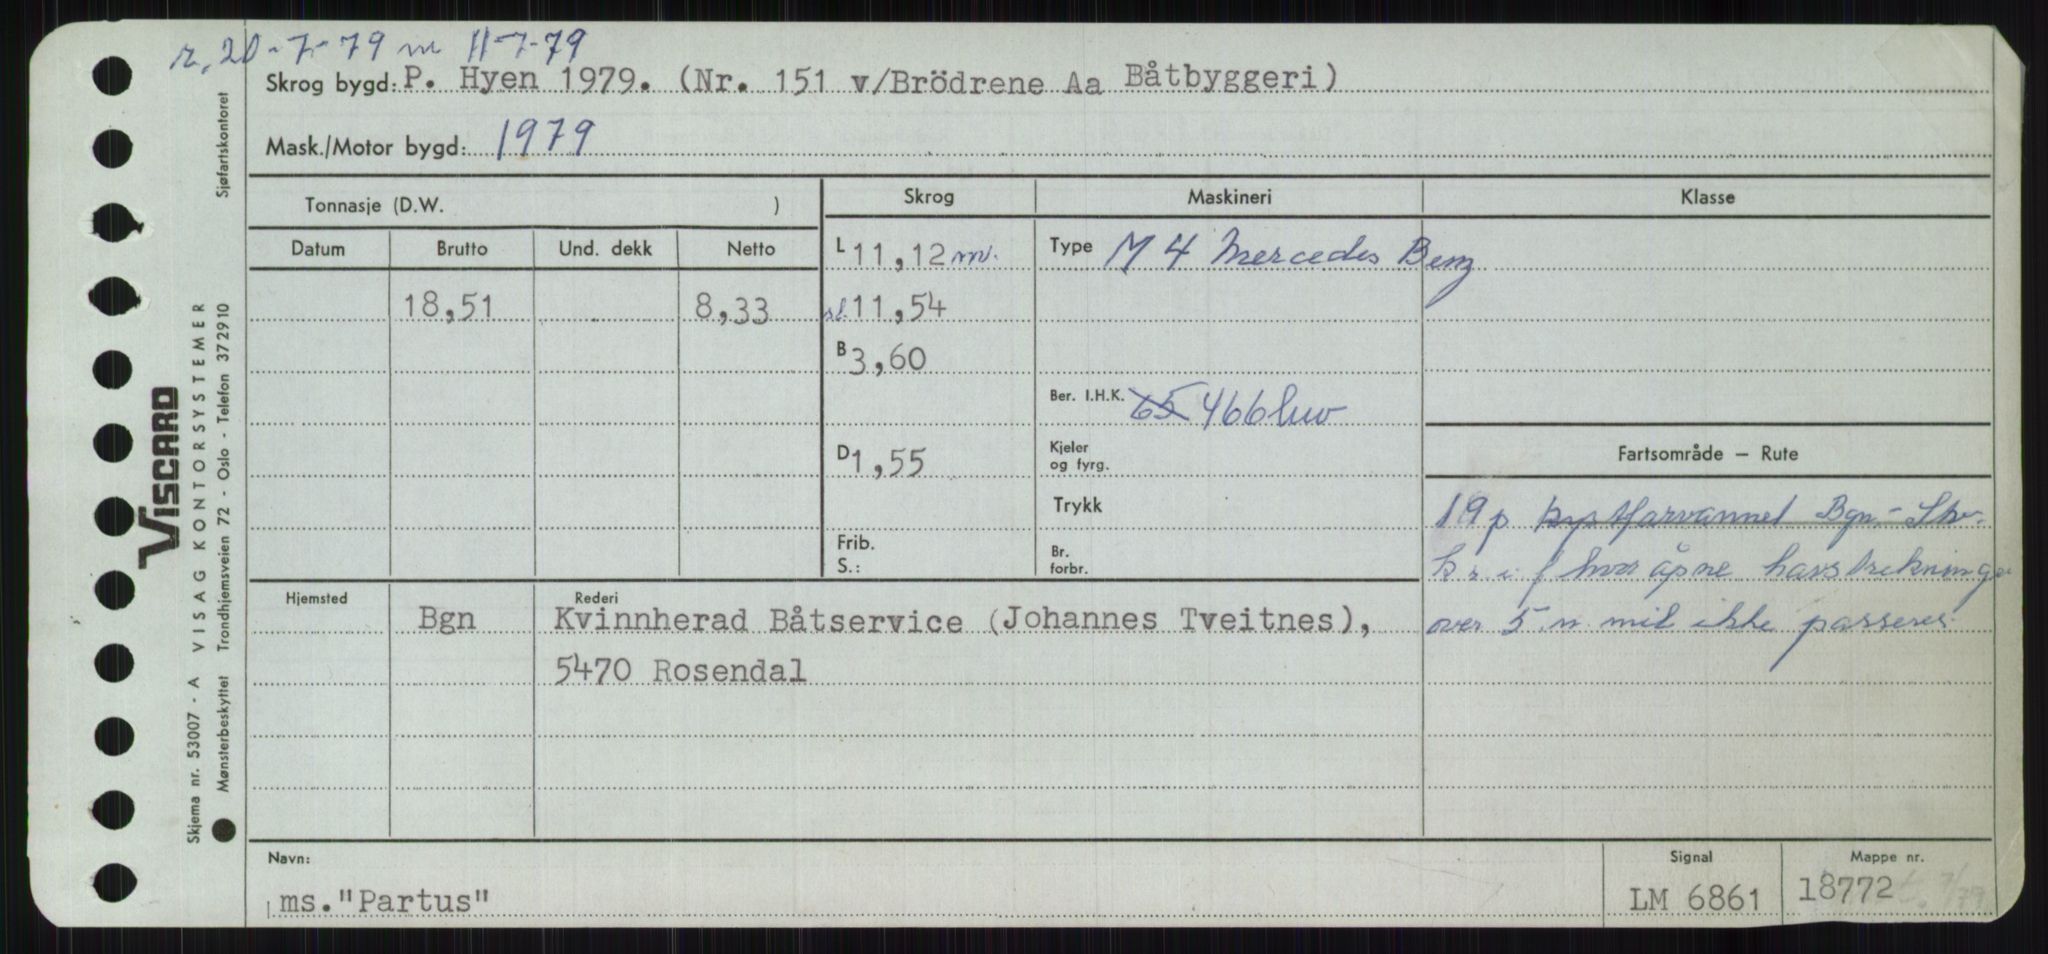 r. 20-7-79 m 11-7-79
Skrog bygd: P. Hyen 1979. (Nr. 151 v/Brödrene Aa Båtbyggeri)
Mask./Motor bygd: 1979
Tonnasje (D.W. ) Skrog Maskineri Klasse
Datum Brutto Und. dekk Netto L 11,12 m. Type M 4 Mercedes Benz
18,51 8,33 st. 11,54
B 3,60
Ber. I.H.K. 65 466 hw
D 1,55 Kjeler og fyrg. Fartsområde – Rute
Trykk 19 p kystfarvannet Bgn - Stv.
Frib. S.: Br. forbr. hvor åpne havstrekninger
Hjemsted Bgn Rederi Kvinnherad Båtservice (Johannes Tveitnes), over 5 n mil ikke passeres
5470 Rosendal
Navn: ms. "Partus" Signal LM 6861 Mappe nr. 18772 7/79
Sjøfartskontoret
VISCARD
VISAG KONTORSYSTEMER
Trondhjemsveien 72 - Oslo - Telefon 372910
Skjema nr. 53007 - A
Mønsterbeskyttet